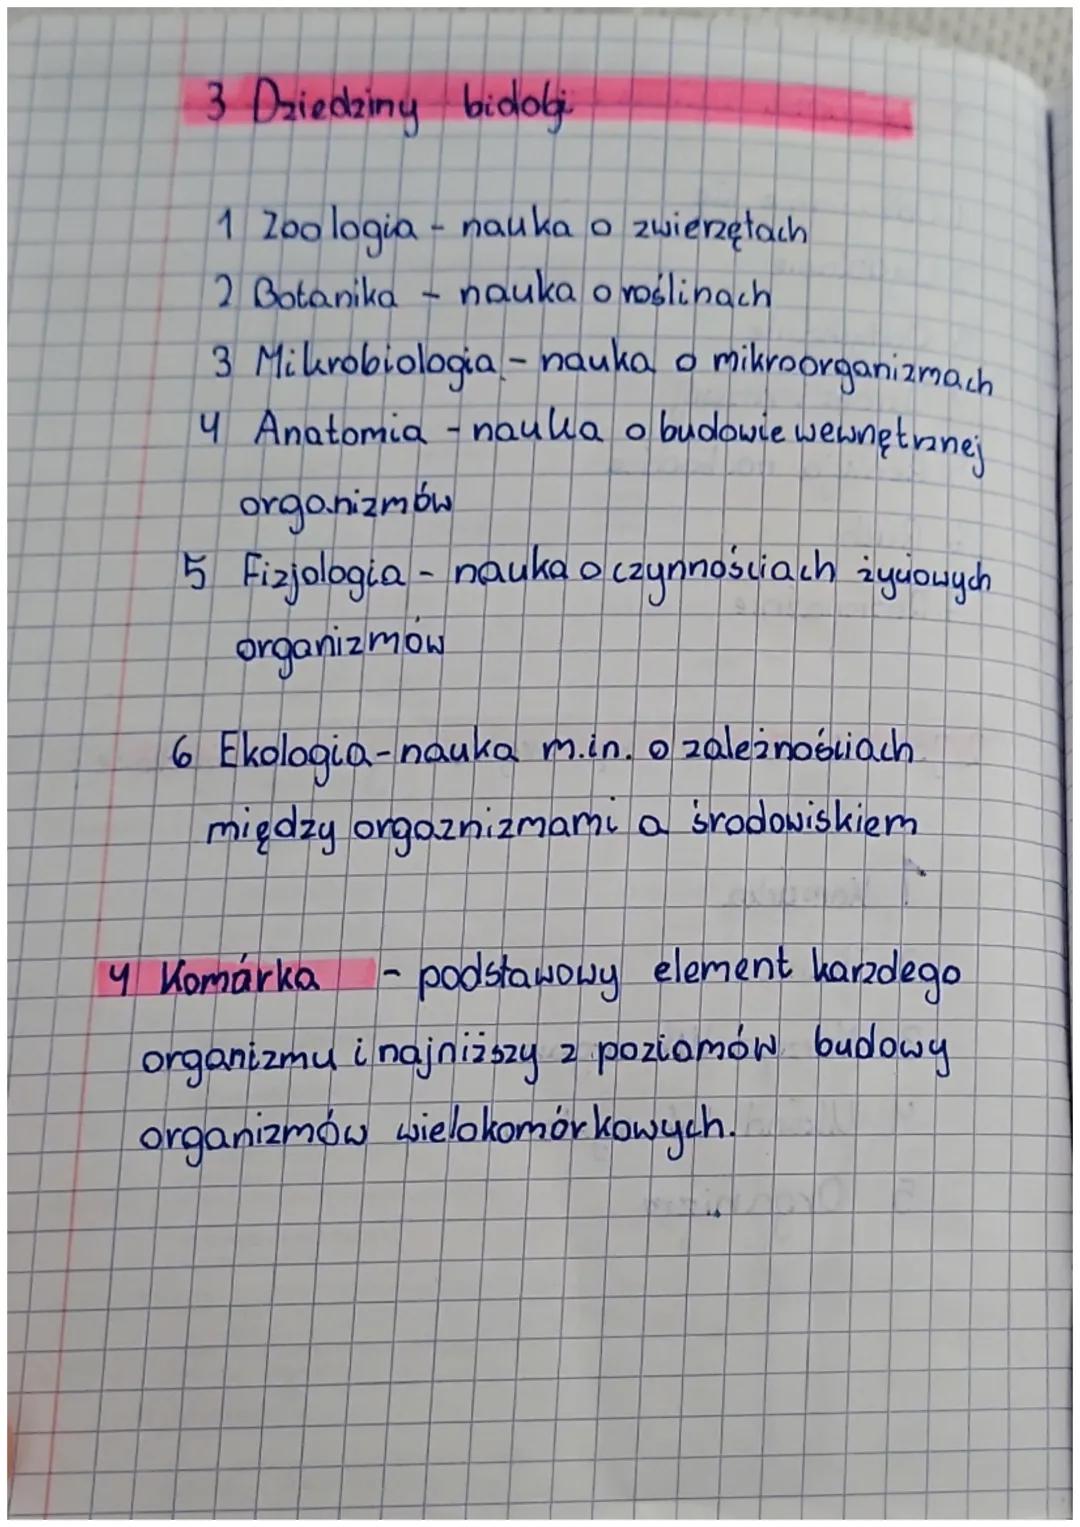 3 Dziedziny biologi
1 Zoologia - nauka o zwierzętach
2 Botanika - nauka o roślinach
3 Mikrobiologia - nauka o mikroorganizmach
4 Anatomia - nauka o budowie wewnętrznej
organizmów
5 Fizjologia - nauka o czynnościach życiowych
organizmów
6 Ekologia - nauka m.in. o zależnościach
między orgaznizmami a środowiskiem
4 Komórka - podstawowy element karzdego
organizmu i najniższy z poziomów budowy
organizmów wielokomórkowych.